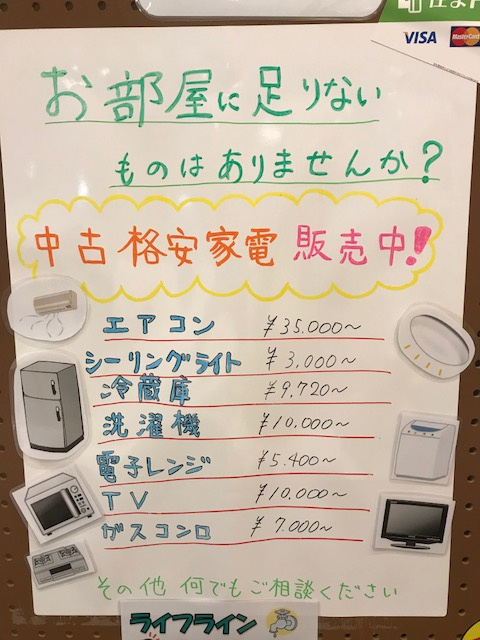 VISA
MasterCard
お部屋に足りない
ものはありませんか？
中古格安家電 販売中！
エアコン ¥35.000～
シーリングライト ¥3,000～
冷蔵庫 ¥9,720～
洗濯機 ¥10,000～
電子レンジ ¥5.400～
TV ¥10,000～
ガスコンロ ¥7,000～
その他 何でもご相談ください
ライフライン